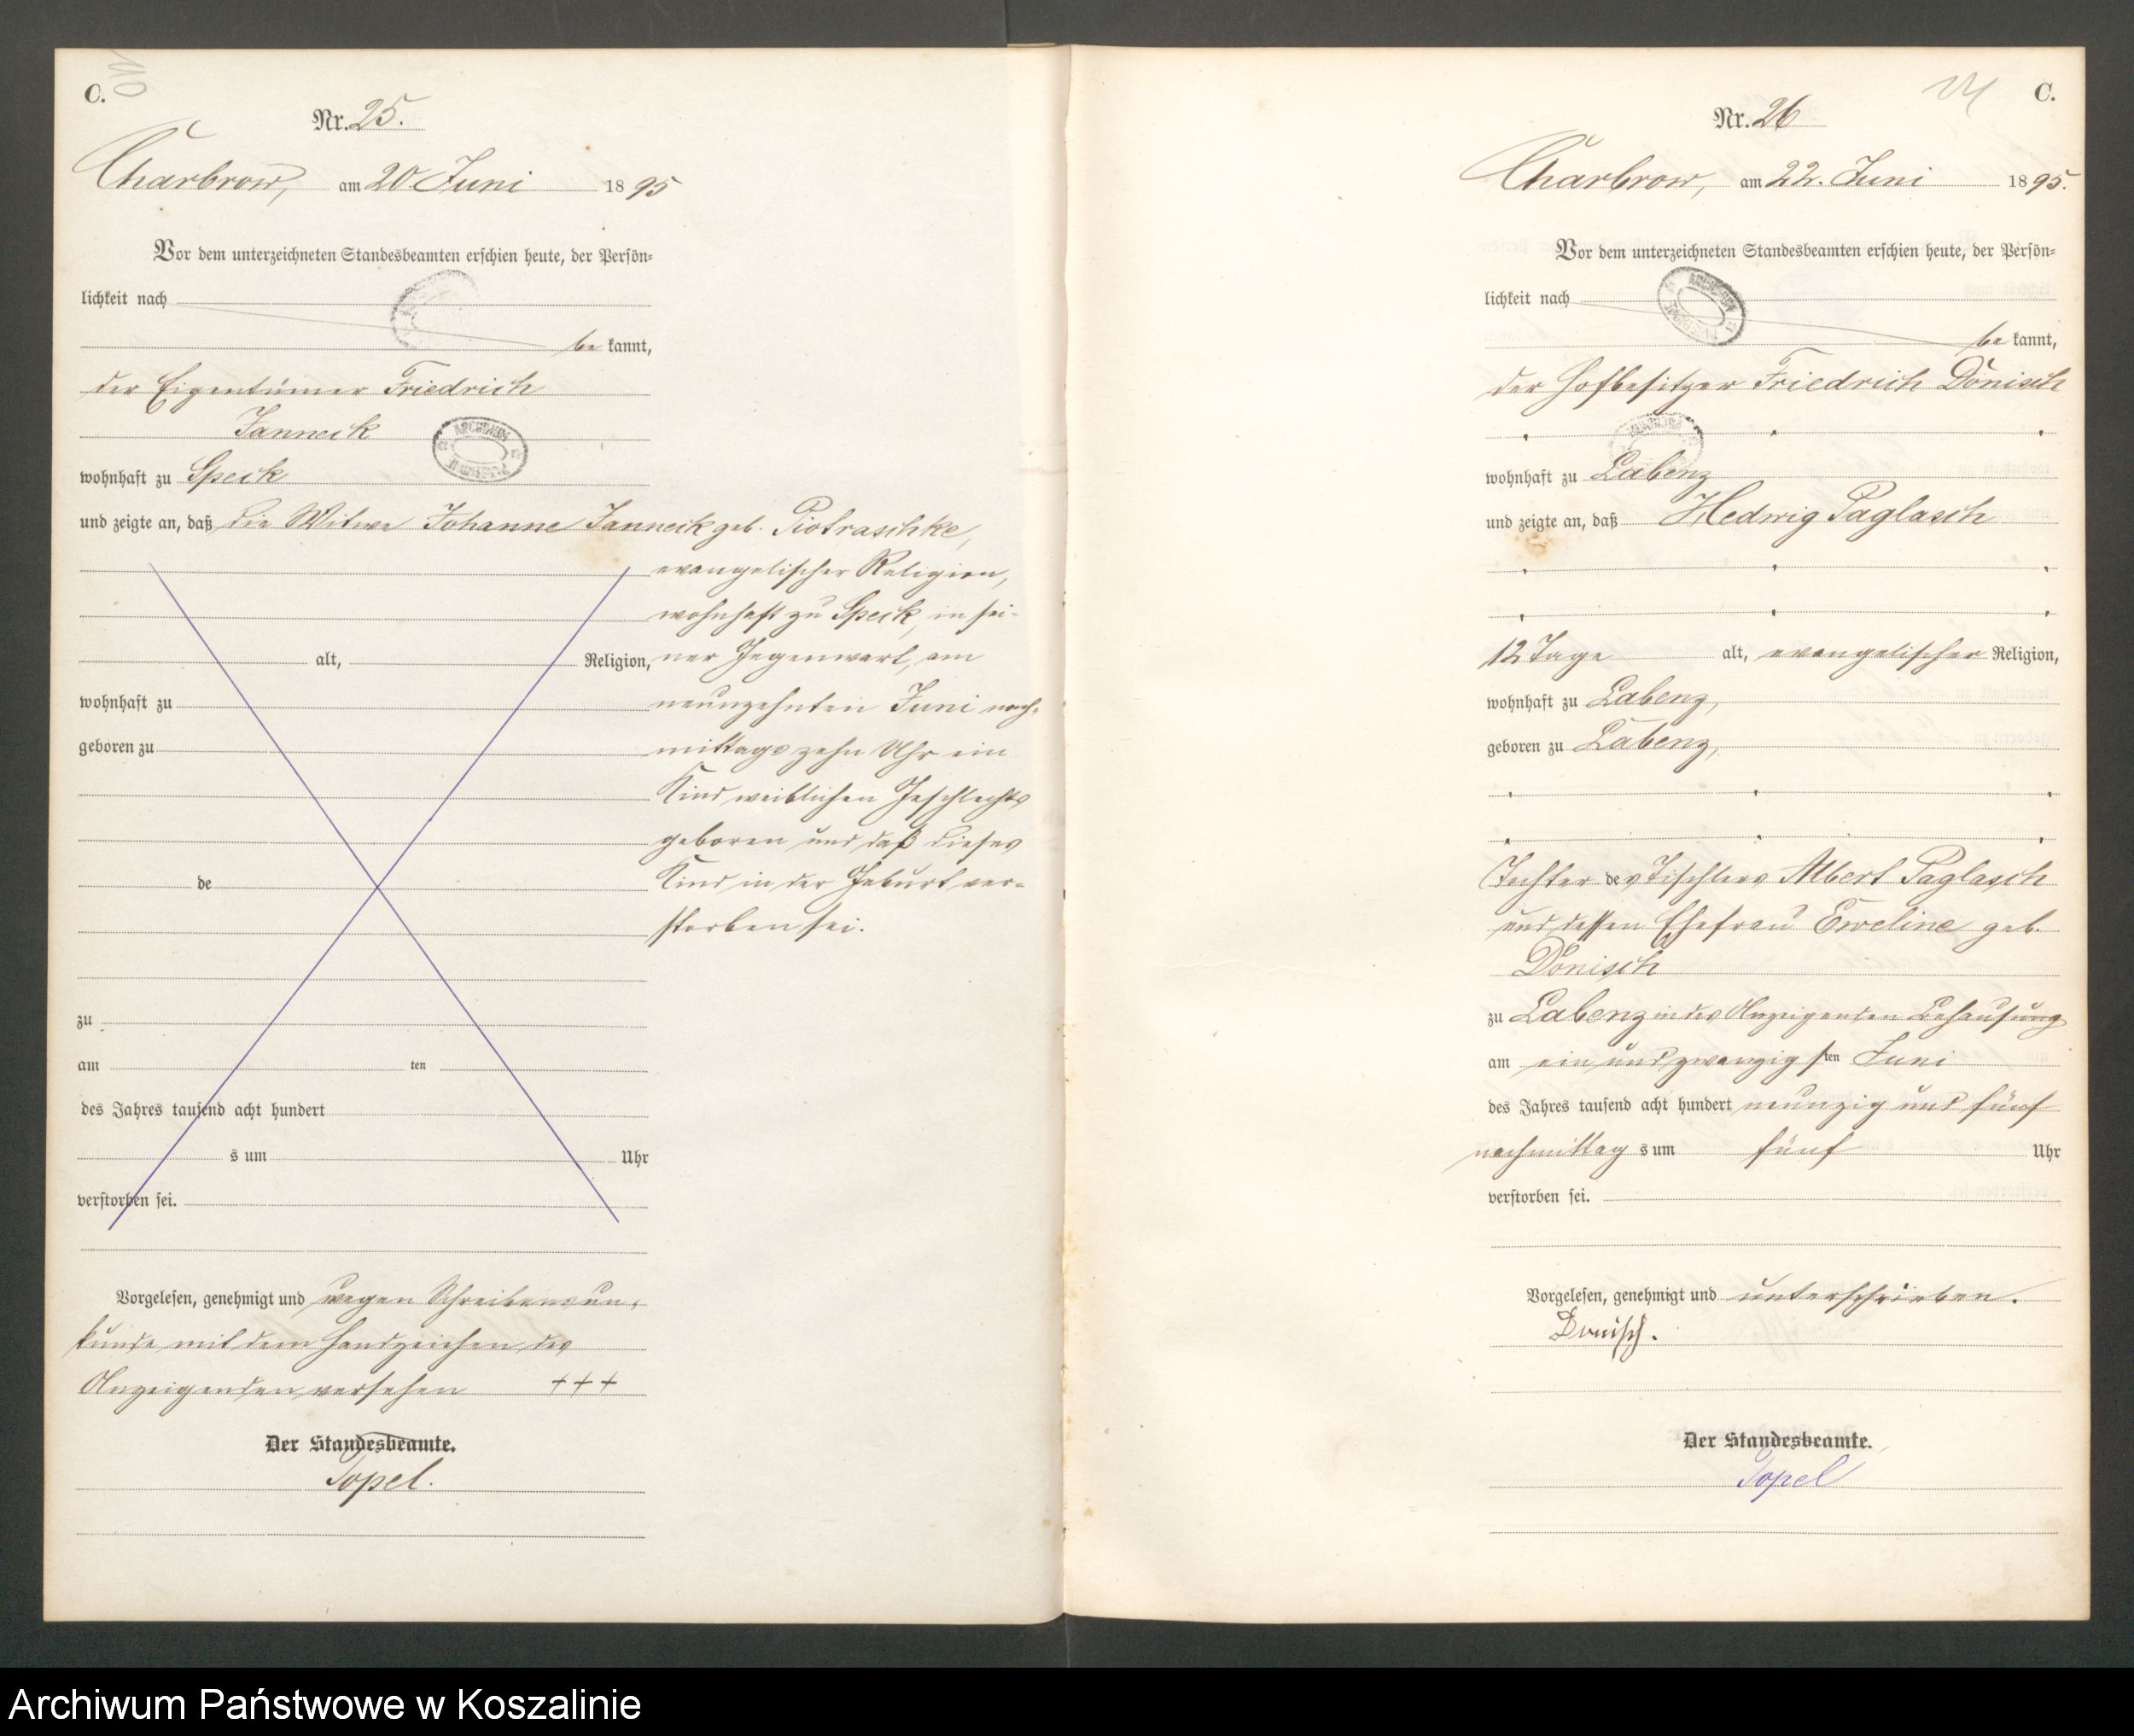 C.
Nr. 25.
Charbrow, am 20. Juni 1895
Vor dem unterzeichneten Standesbeamten erschien heute, der Persön-
lichkeit nach
be kannt,
der Eigentümer Friedrich
Janneck
wohnhaft zu Speck
und zeigte an, daß die Witwe Johanne Janneck geb. Piotraschke,
evangelischer Religion,
wohnhaft zu Speck, in sei-
alt, Religion, ner Gegenwart, am
wohnhaft zu neunzehnten Juni nach-
geboren zu mittags zehn Uhr ein
Kind weiblichen Geschlechts
geboren und daß dieses
de Kind in der Geburt ver-
storben sei.
zu
am ten
des Jahres tausend acht hundert
s um Uhr
verstorben sei.
Vorgelesen, genehmigt und wegen Schreibensun-
kunde mit dem Handzeichen des
Anzeigenden versehen +++
Der Standesbeamte.
Topel.
C.
Nr. 26
Charbrow, am 22. Juni 1895.
Vor dem unterzeichneten Standesbeamten erschien heute, der Persön-
lichkeit nach
be kannt,
der Hofbesitzer Friedrich Dönisch
wohnhaft zu Labenz
und zeigte an, daß Hedwig Paglasch
12 Tage alt, evangelischer Religion,
wohnhaft zu Labenz,
geboren zu Labenz,
Tochter des Tischlers Albert Paglasch
und dessen Ehefrau Eweline geb.
Dönisch
zu Labenz in des Anzeigenden Behausung
am ein und zwanzigsten Juni
des Jahres tausend acht hundert neunzig und fünf
nachmittags um fünf Uhr
verstorben sei.
Vorgelesen, genehmigt und unterschrieben.
Dönisch.
Der Standesbeamte.
Topel
Archiwum Państwowe w Koszalinie